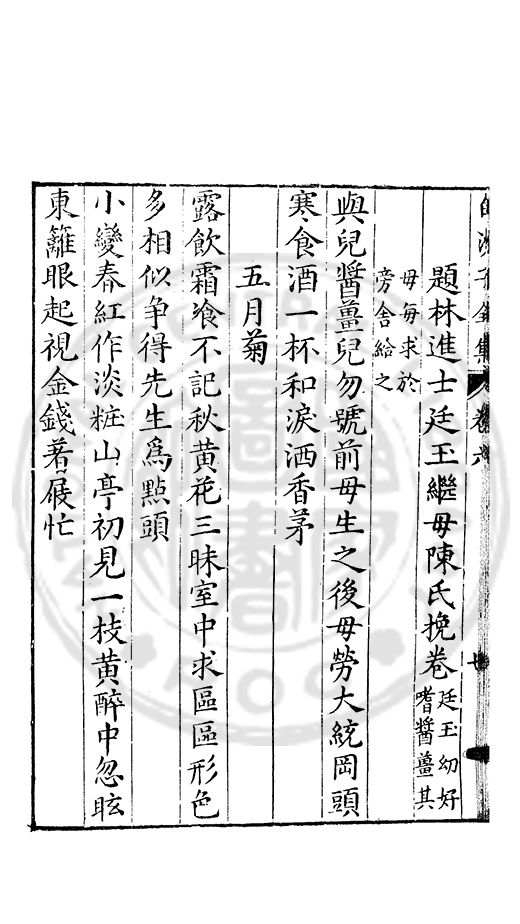 白沙子全集 卷六
題林進士廷玉繼母陳氏挽卷廷玉幼好嗜醬薑其
母每求於旁舍給之
與兒醬薑兒勿號前母生之後母勞大統岡頭
寒食酒一杯和淚洒香茅
五月菊
露飲霜飡不記秋黃花三昧室中求區區形色
多相似爭得先生爲點頭
小變春紅作淡粧山亭初見一枝黃醉中忽眩
東籬眼起視金錢著屐忙